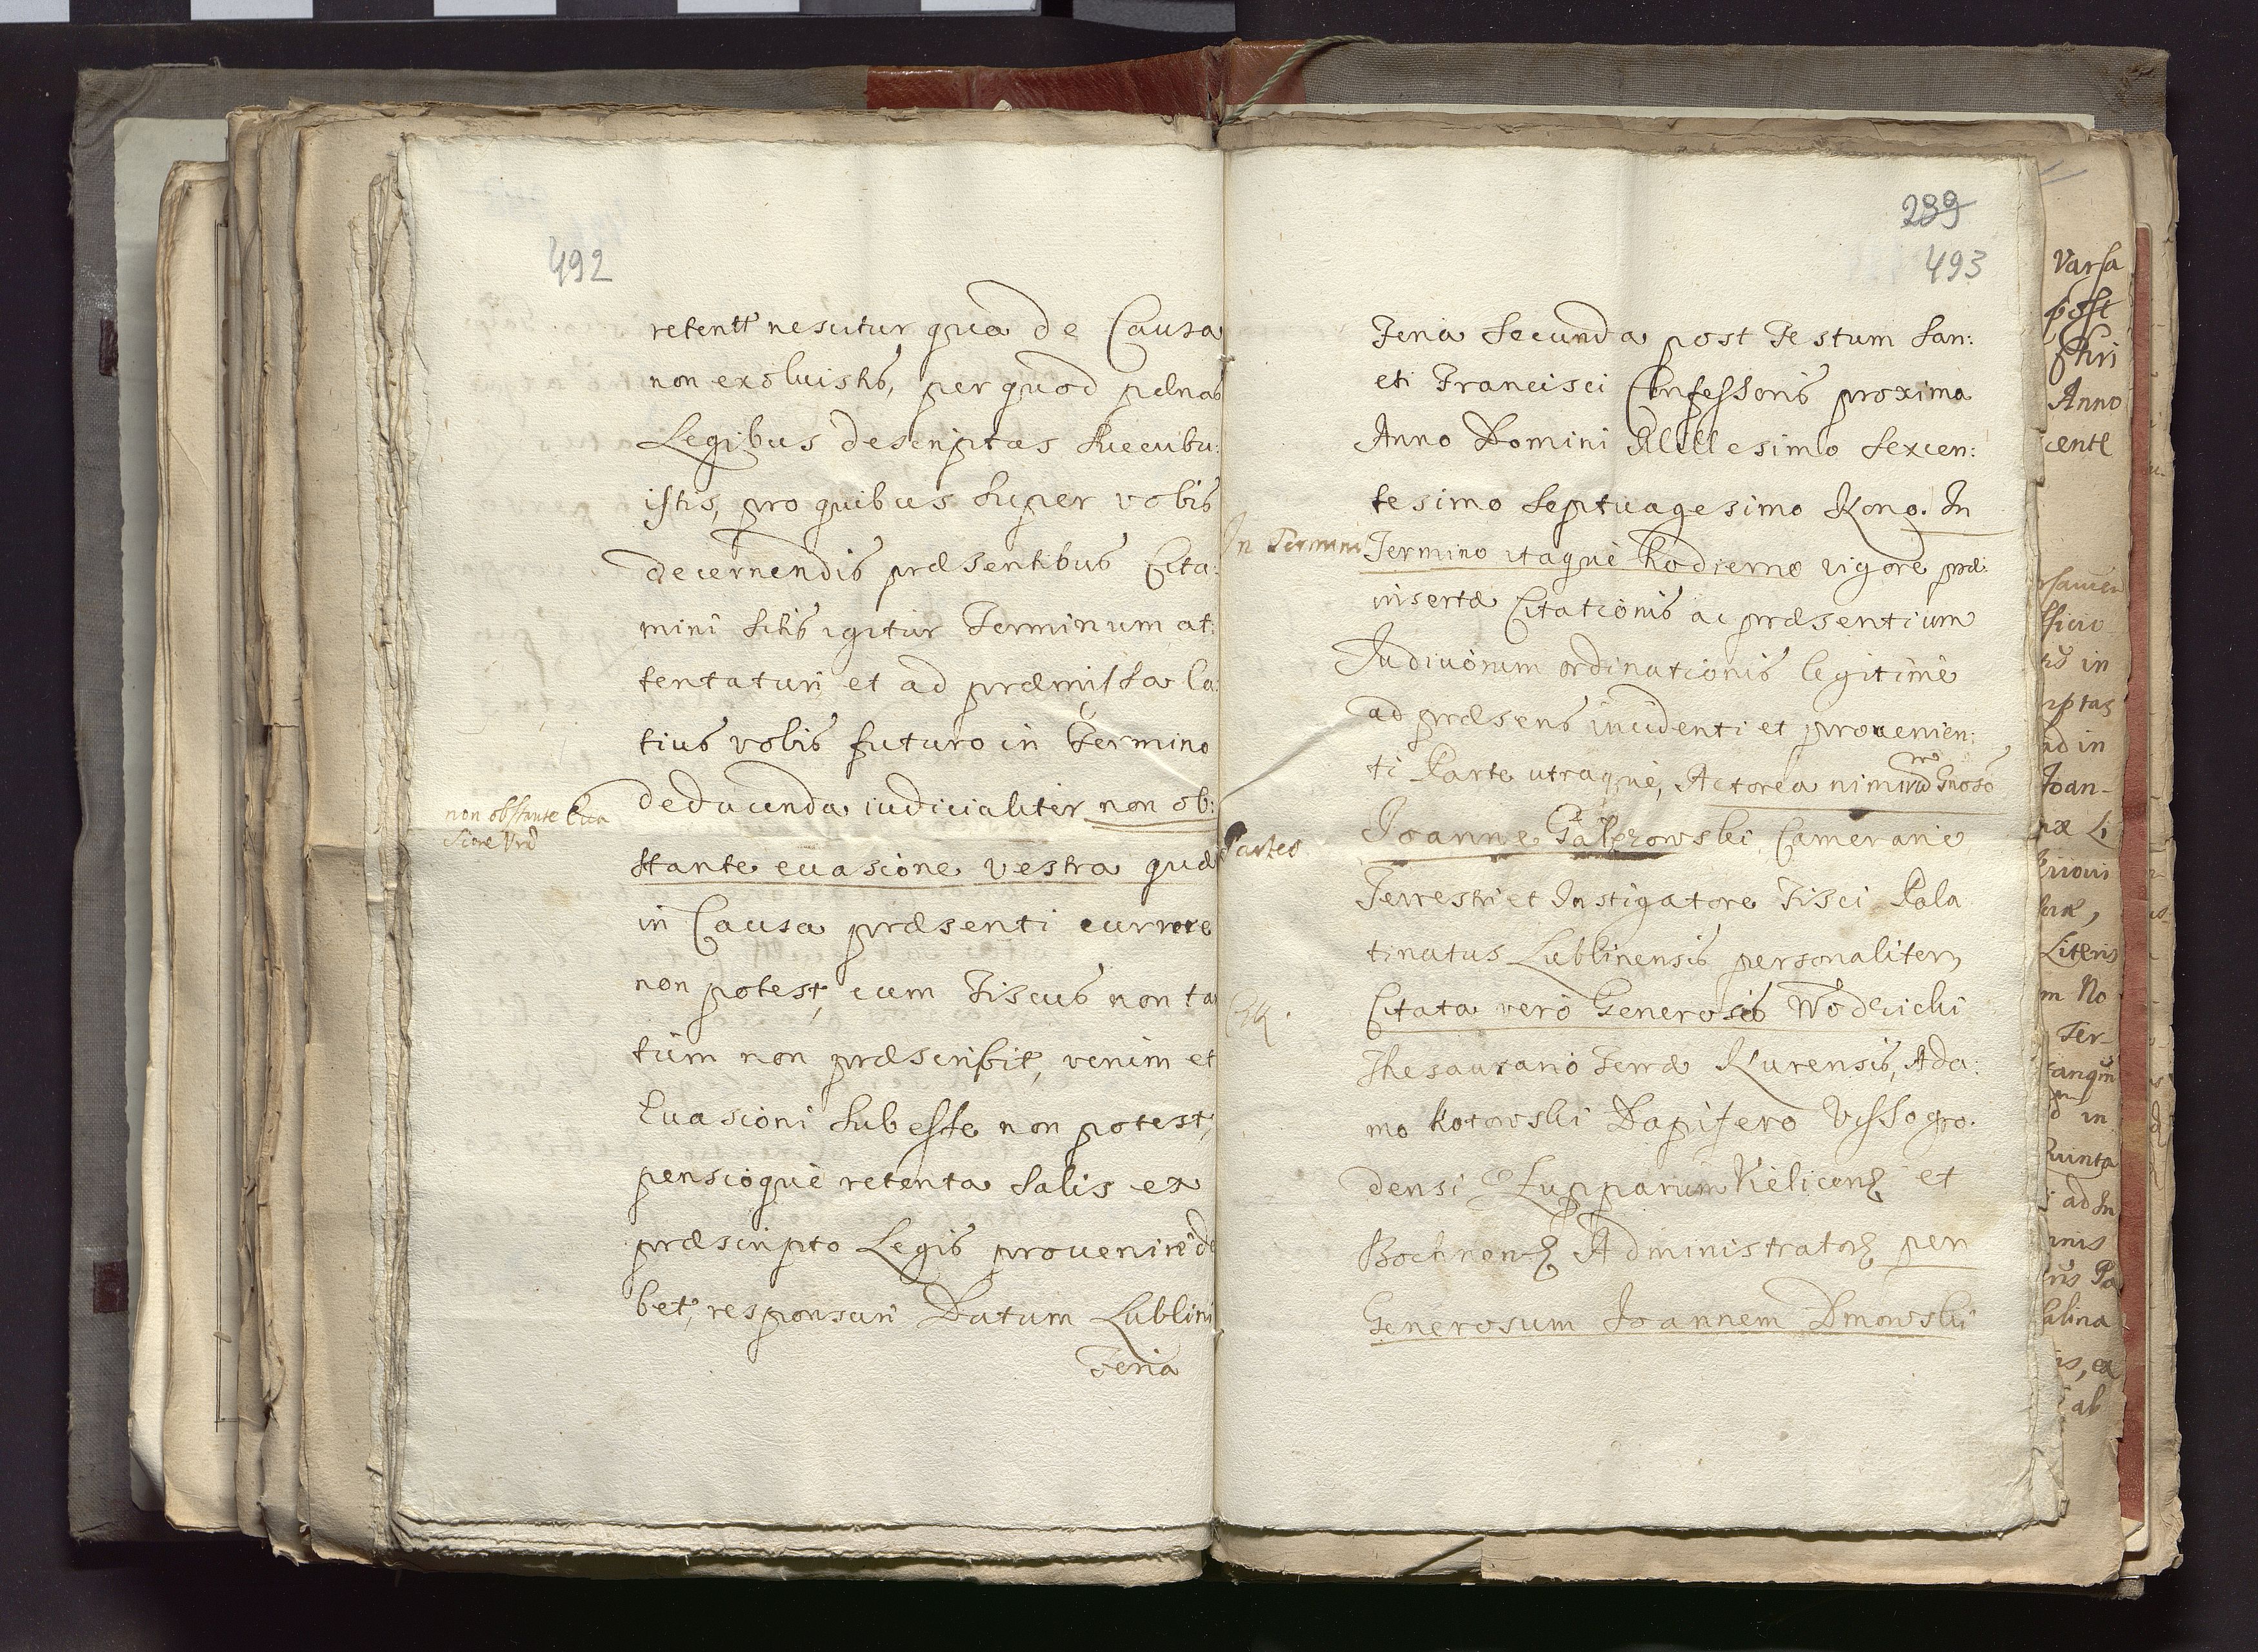 492
retentt nescitur qua de Causa
non exoluistis, per quod pænas
Legibus descriptas Succubu:
istis, pro quibus Super vobis
decernendis præsentibus Cita:
mini Sitis igitur Terminum at:
tentaturi et ad præmissa la:
tius vobis futuro in Termino
deducenda iudicialiter non ob:
stante euasione vestra quæ
in Causa præsenti currere
non potest, cum Fiscus non ta
tum non præscribit, verum et
Euasioni Subesse non potest,
pensioque retenta Salis ex
præscripto Legis prouenire de
bet, responsuri Datum Lublini
Feria
non obstante Eua
sione Vrã
239
493
Feria Secunda post Festum San:
cti Francisci Confessoris proxima
Anno Domini Millesimo Sexcen:
tesimo Septuagesimo Nono. In
Termino itaque hodierno vigore præ:
insertæ Citationis ac præsentium
Iudiciorum ordinationis legitime
ad præsens incidenti et prouenien:
ti Parte utraque, Actorea nimirũ Gnoso
Joanne Camerario
Terrestri et Instigatore Fisci Pala
tinatus Lublinensis personaliter,
Citata vero Generosis Wodzicki
Thesaurario Terræ Nurensis, Ada:
mo Kotowski Dapifero Vissogro.
densi Zupparum Vielicens et
Bochnens Administrator per
Generosum Joannem Dmowski
In Termino
Partes
Varsa
post
Chri
Anno
cente
fficio
in
iptas
ad in
Joan-
Literis
m No
Ter-
in
Quinta
ad In
Pa
alina
is, ex
ab